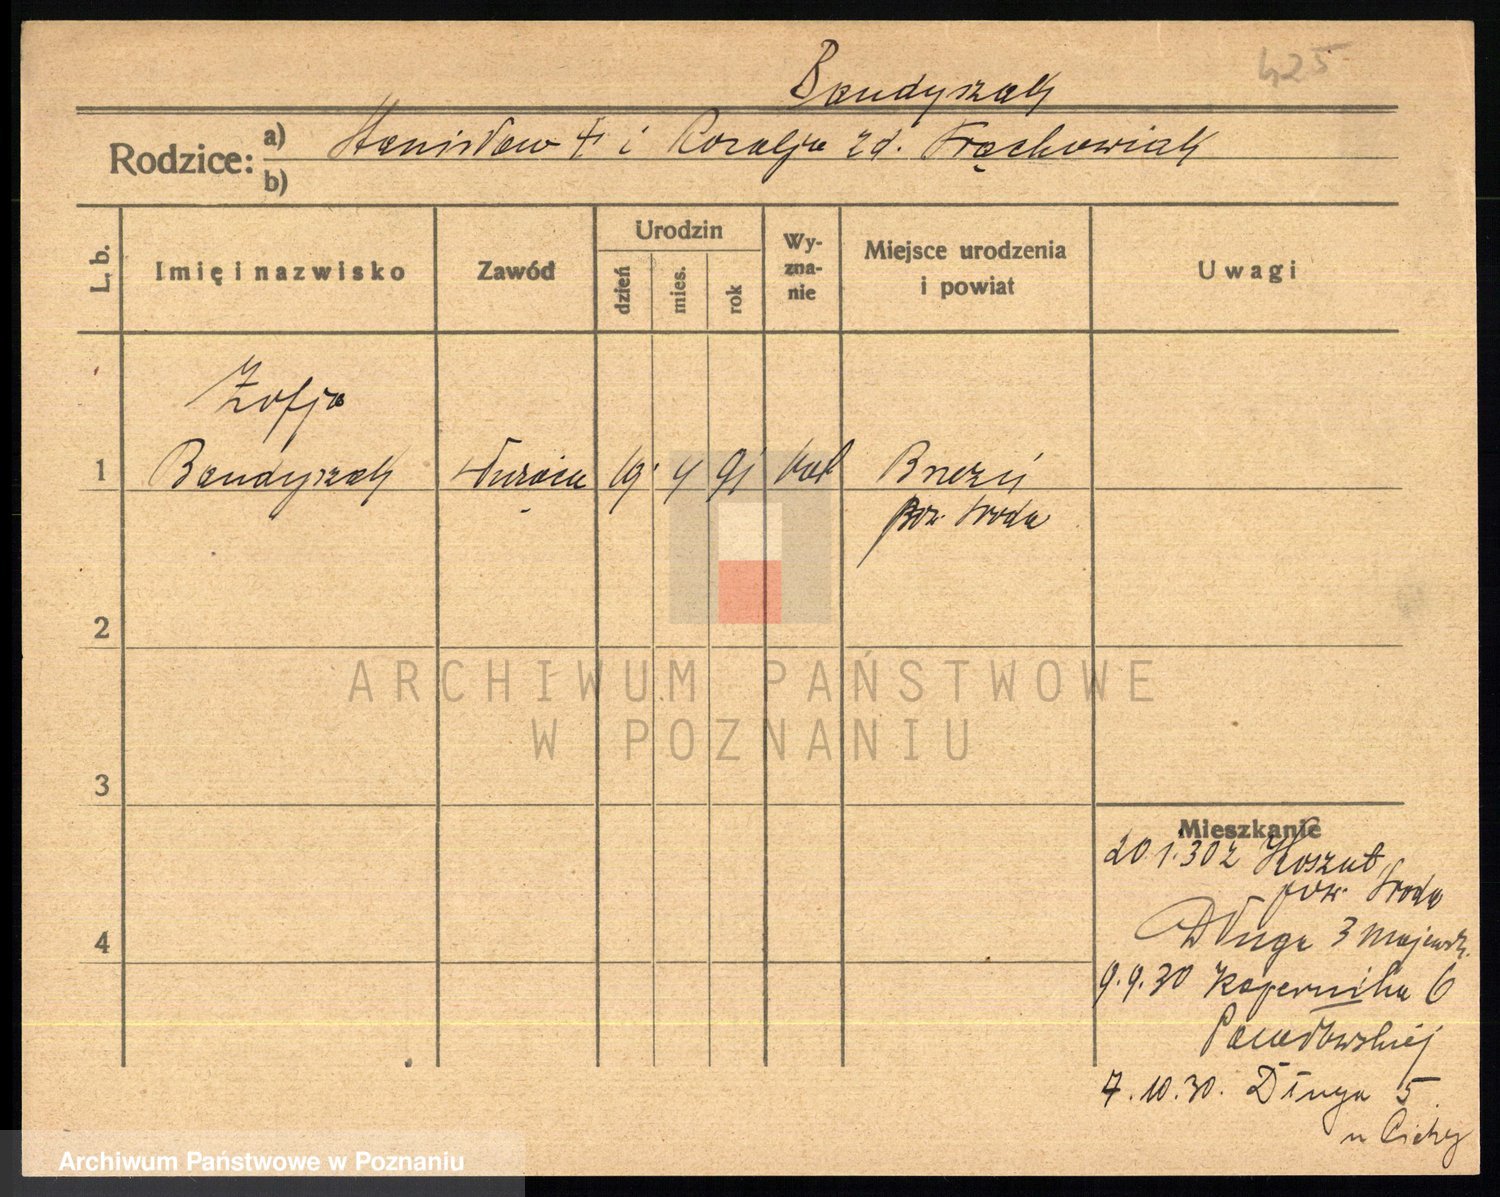 425
Bandyszak
Rodzice: a) Stanisław † i Rozalja zd. Frąchowiak
b)
L. b. Imię i nazwisko Zawód Urodzin dzień mies. rok Wy-zna-nie Miejsce urodzenia i powiat Uwagi
Zofja
1 Bandyszak służąca 19. 4 91 kat
pow. Środa
2
ARCHIWUM PAŃSTWOWE
W POZNANIU
3
Mieszkanie
20.1.30 z Koszut
pow. Środa
4 Długa 3
9.9.30 Kopernika 6
7.10.30. Długa 5
u Cichy
Archiwum Państwowe w Poznaniu